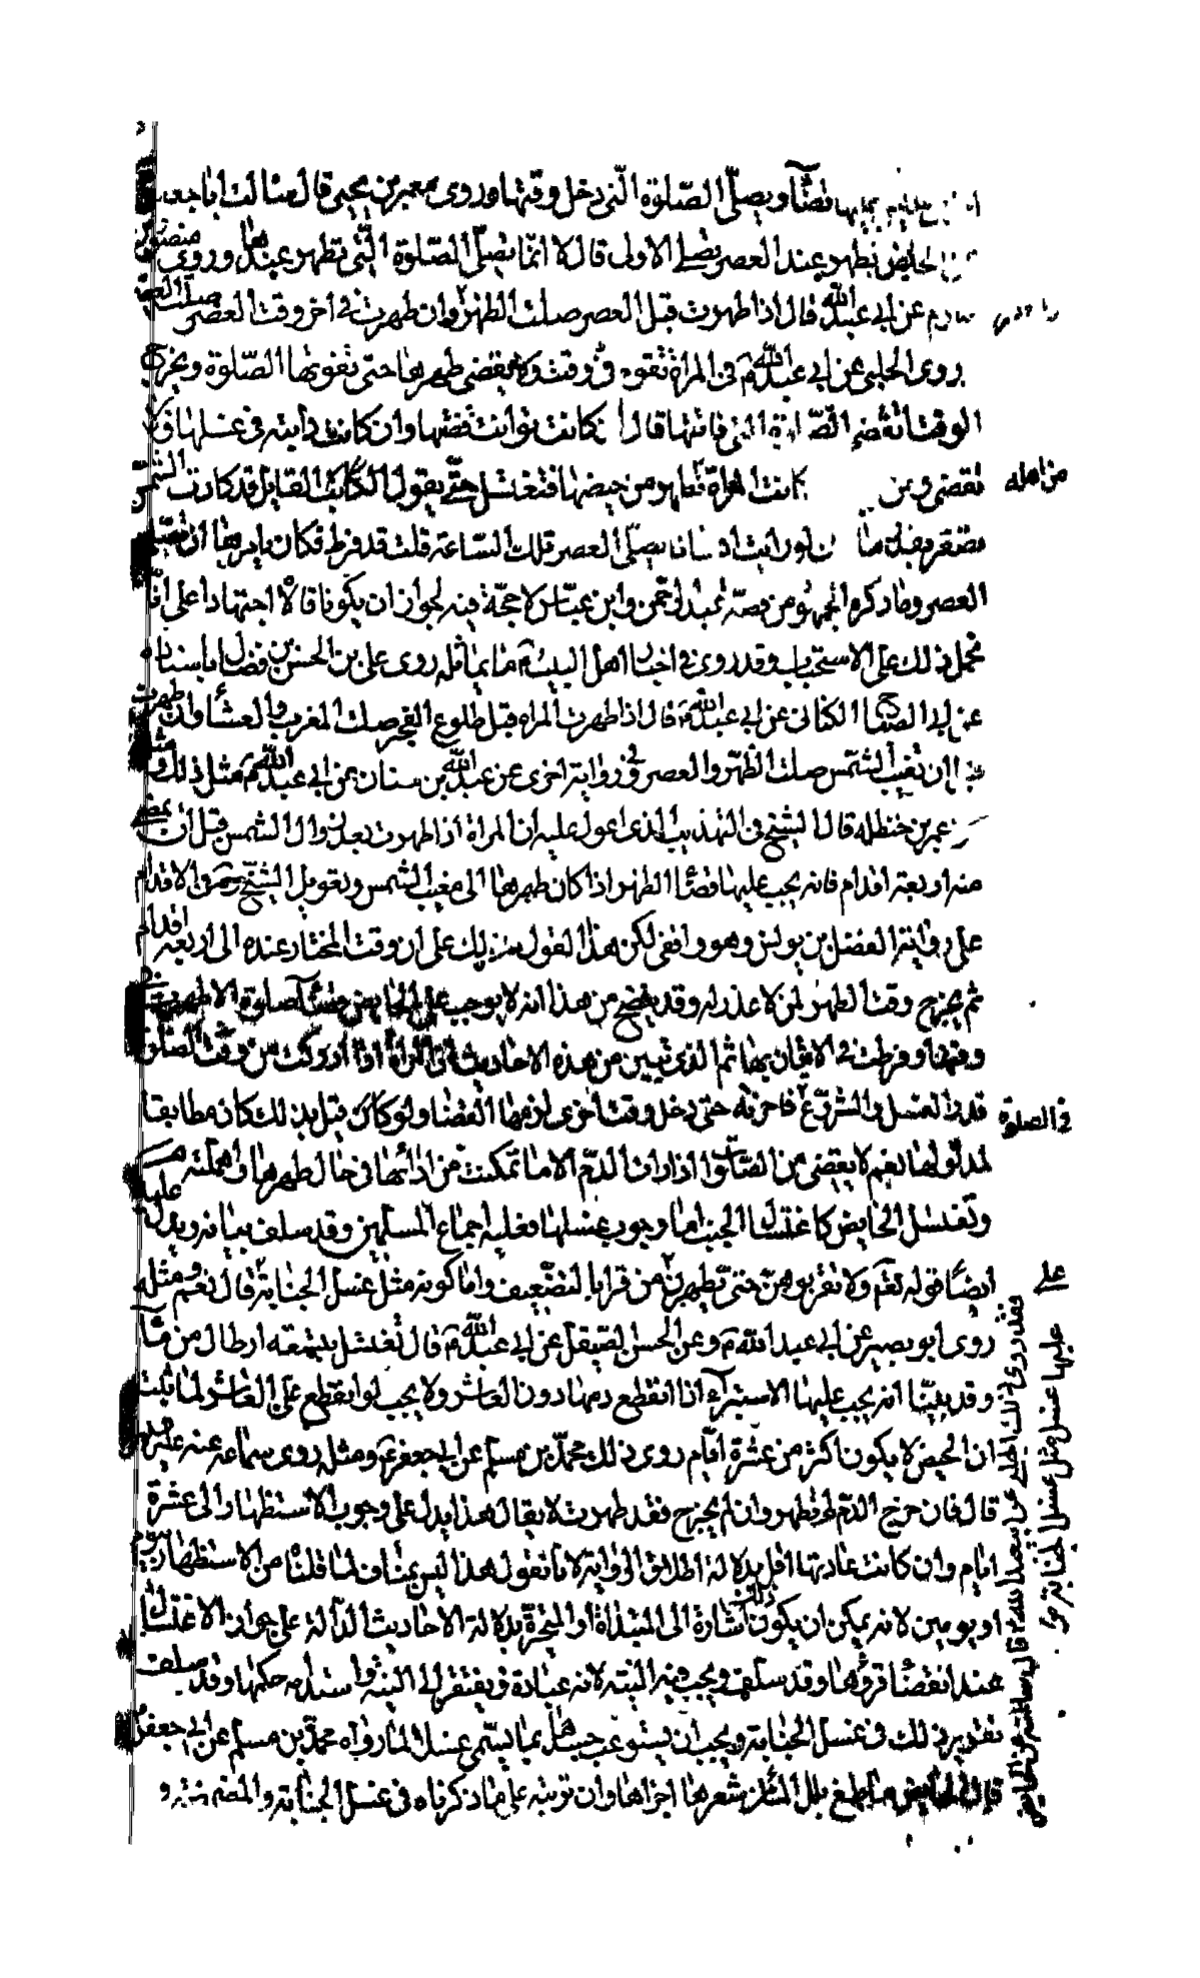 قضاؤها ويصلّي الصّلوة الّتي دخل وقتها وروى معمر بن يحيى قال سالت ابا جعفر
الحايض تطهر عند العصر يصلي الاولى قال لا انّما يصلّي الصّلوة الّتي تطهر عندها وروى منصور بن
حازم عن ابي عبد الله قال اذا طهرت قبل العصر صلت الظهر وان طهرت في اخر وقت العصر صلت العصر
روى الحلبي عن ابي عبد الله م في المراة تقوم في وقت ولا يقضي طهرها حتى تفوتها الصّلوة ويخرج
الوقت اتقضي الصّلوة التي فاتتها قال كانت توانت قضتها وان كانت دايبة في غسلها فلا
تقضي وعن كانت المراة تطهر من حيضها فتغتسل حتّى يقول القايل قد كادت الشمس
من اهله
تصفر بقدر ما لو رايت انسانا يصلّي العصر تلك السّاعة قلت قد فرط فكان يامرها ان تصلي
العصر وما ذكره الجمهور من قصّة عبد الرحمن وابن عبّاس لا حجّة فيه لجواز ان يكونا قالاه اجتهادا على انّا
نحمل ذلك على الاستحباب وقد روى في اخبار اهل البيت م ما يماثله روى علي بن الحسن بن فضال باسناده
عن ابي الصباح الكناني عن ابي عبد الله م قال اذا طهرت المراه قبل طلوع الفجر صلت المغرب والعشا وان طهرت
قبل ان تغيب الشمس صلت الظهر والعصر وفي رواية اخرى عن عبد الله بن سنان عن ابي عبد الله م مثل ذلك
عمر بن حنظله قال الشيخ في التهذيب الذي اعول عليه ان المراة اذا طهرت بعد زوال الشمس قبل ان يمضي
منه اربعة اقدام فانه يجب عليها قضا الظهر اذا كان طهرها الى مغيب الشمس وتعويل الشيخ رحمه في الاقدام
على رواية الفضل بن يونس وهو واقفي لكن هذا القول منه يدلك على ان وقت المختار عنده الى اربعة اقدام
ثم يخرج وقت الظهر لمن لا عذر له وقد يضح من هذا انه لا يوجب على الحايض قضا صلوة الا اذا طهرت في
وقتها وفرطت في الاتيان بها ثم الذي تبين من هذه الاحاديث ان المراة اذا ادركت من وقت الصلوة
قدر الغسل والشروع فاخرته حتى دخل وقت اخرى لزمها القضا ولو كان قبل بذلك كان مطابقا
في الصلوة
لمدلولها نعم لا يقضي من الصّلوة اذا رات الدّم الا ما تمكنت من ادائها في حال طهرها فاهملته
وتغتسل الحايض كاغتسال الجنب اما وجوب غسلها فعليه اجماع المسلمين وقد سلف بيانه ويدل عليه
ايضا قوله تعم ولا تقربوهنّ حتى يطهرن من قرا بالتضعيف واما كونه مثل غسل الجنابة قال نعم ومثله
روى ابو بصير عن ابي عبد الله م وعن الحسن الصيقل عن ابي عبد الله م قال تغتسل بتسعة ارطال من ماء
وقد بيّنا انه يجب عليها الاستبراء اذا انقطع دمها دون العاشر ولا يجب لو انقطع على العاشر لما ثبت
ان الحيض لا يكون اكثر من عشرة ايّام روى ذلك محمّد بن مسلم عن ابي جعفر م ومثله روى سماعه عنه عليه
قال فان خرج الدّم لم تطهر وان لم يخرج فقد طهرت لا يقال هذا يدل على وجوب الاستظهار الى عشرة
ايام وان كانت عادتها اقل بدلالة اطلاق الرواية لانا نقول هذا ليس بمناف لما قلناه من الاستظهار بيوم
او يومين لانه يمكن ان يكون ذلك اشارة الى المبتداة او المتحيّرة بدلالة الاحاديث الدّالة على جواز الاغتسال
عند انقضا قرؤها وقد سلف ويجب فيه النية لانه عبادة فيفتقر الى النية واستدامه حكمها وقد سلف
تقدير ذلك في غسل الجنابة ويجب ان يستوعب جسدها بما يسمّى غسلا لما رواه محمّد بن مسلم عن ابي جعفر
قال الحايض ما بلغ بلل الماء من شعرها اجزاها وان ترتبه على ما ذكرناه في غسل الجنابة والمضمضة و
على
عليها غسل مثل غسل الجنابة
فقد روى ذلك الحلبي عن ابي عبد الله م قال سالته عن الحايض